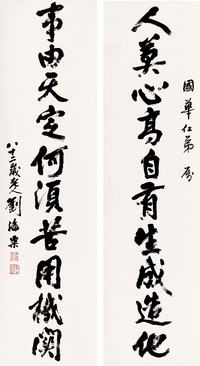 國華仁弟屬
人莫心高自有生成造化
事由天定何須苦用機關
八十二歲老人劉海粟